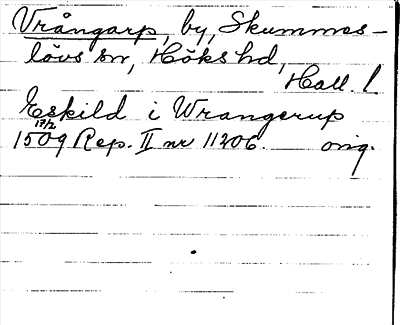 Vrångarp, by, Skummes-
lövs sn, Höks hd,
Hall. l
Eskild i Wrangerup
17/2
1509 Rep. II nr 11206. orig.